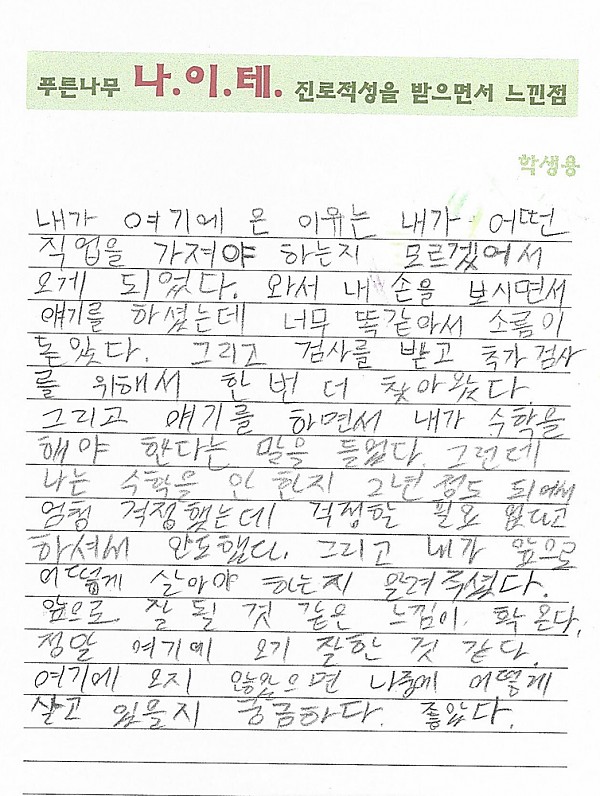 푸른나무 나.이.테. 진로적성을 받으면서 느낀점
학생용
내가 여기에 온 이유는 내가 어떤
직업을 가져야 하는지 모르겠어서
오게 되었다. 와서 내 손을 보시면서
얘기를 하셨는데 너무 똑같아서 소름이
돋았다. 그리고 검사를 받고 추가 검사
를 위해서 한 번 더 찾아왔다.
그리고 얘기를 하면서 내가 수학을
해야 한다는 말을 들었다. 그런데
나는 수학을 안 한지 2년 정도 되어서
엄청 걱정했는데 걱정할 필요 없다고
하셔서 안도했다. 그리고 내가 앞으로
어떻게 살아야 하는지 알려주셨다.
앞으로 잘 될 것 같은 느낌이 확 온다.
정말 여기에 오기 잘한 것 같다.
여기에 오지 않았으면 나중에 어떻게
살고 있을지 궁금하다. 좋았다.